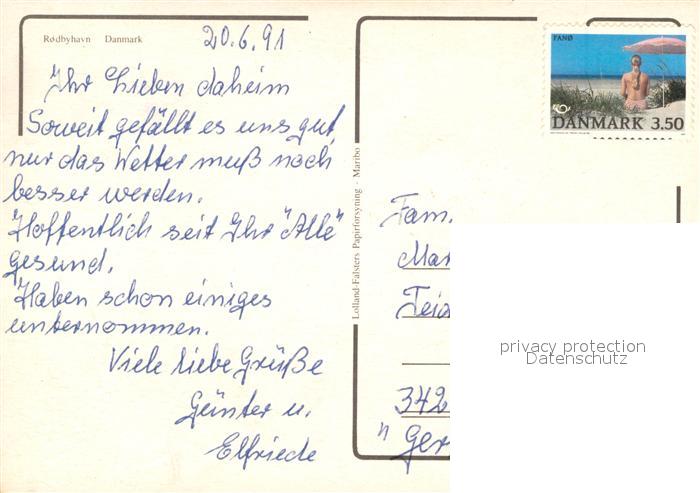 Rødbyhavn Danmark
20.6.91
Ihr Lieben daheim
Soweit gefällt es uns gut,
nur das Wetter muß noch
besser werden.
Hoffentlich seit Ihr "Alle"
gesund.
Haben schon einiges
unternommen.
Viele liebe Grüße
Günter u.
Elfriede
Lolland-Falsters Papirforsyning - Maribo
FANØ
DANMARK 3.50
Fam.
Mar
342
"Ger
privacy protection
Datenschutz